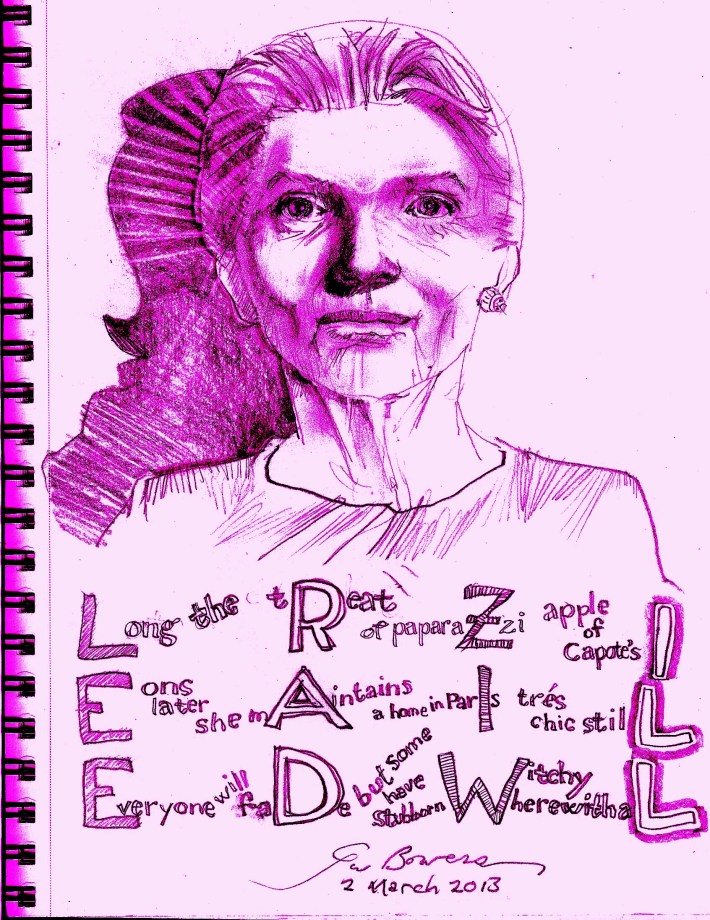 Long the tReat of papara Zzi apple of Capote's I
Eons later she mAintains a home in ParIs trés chic stilL
Everyone will faDe but some have stubborn Witchy WherewithaL
Bowers
2 March 2013